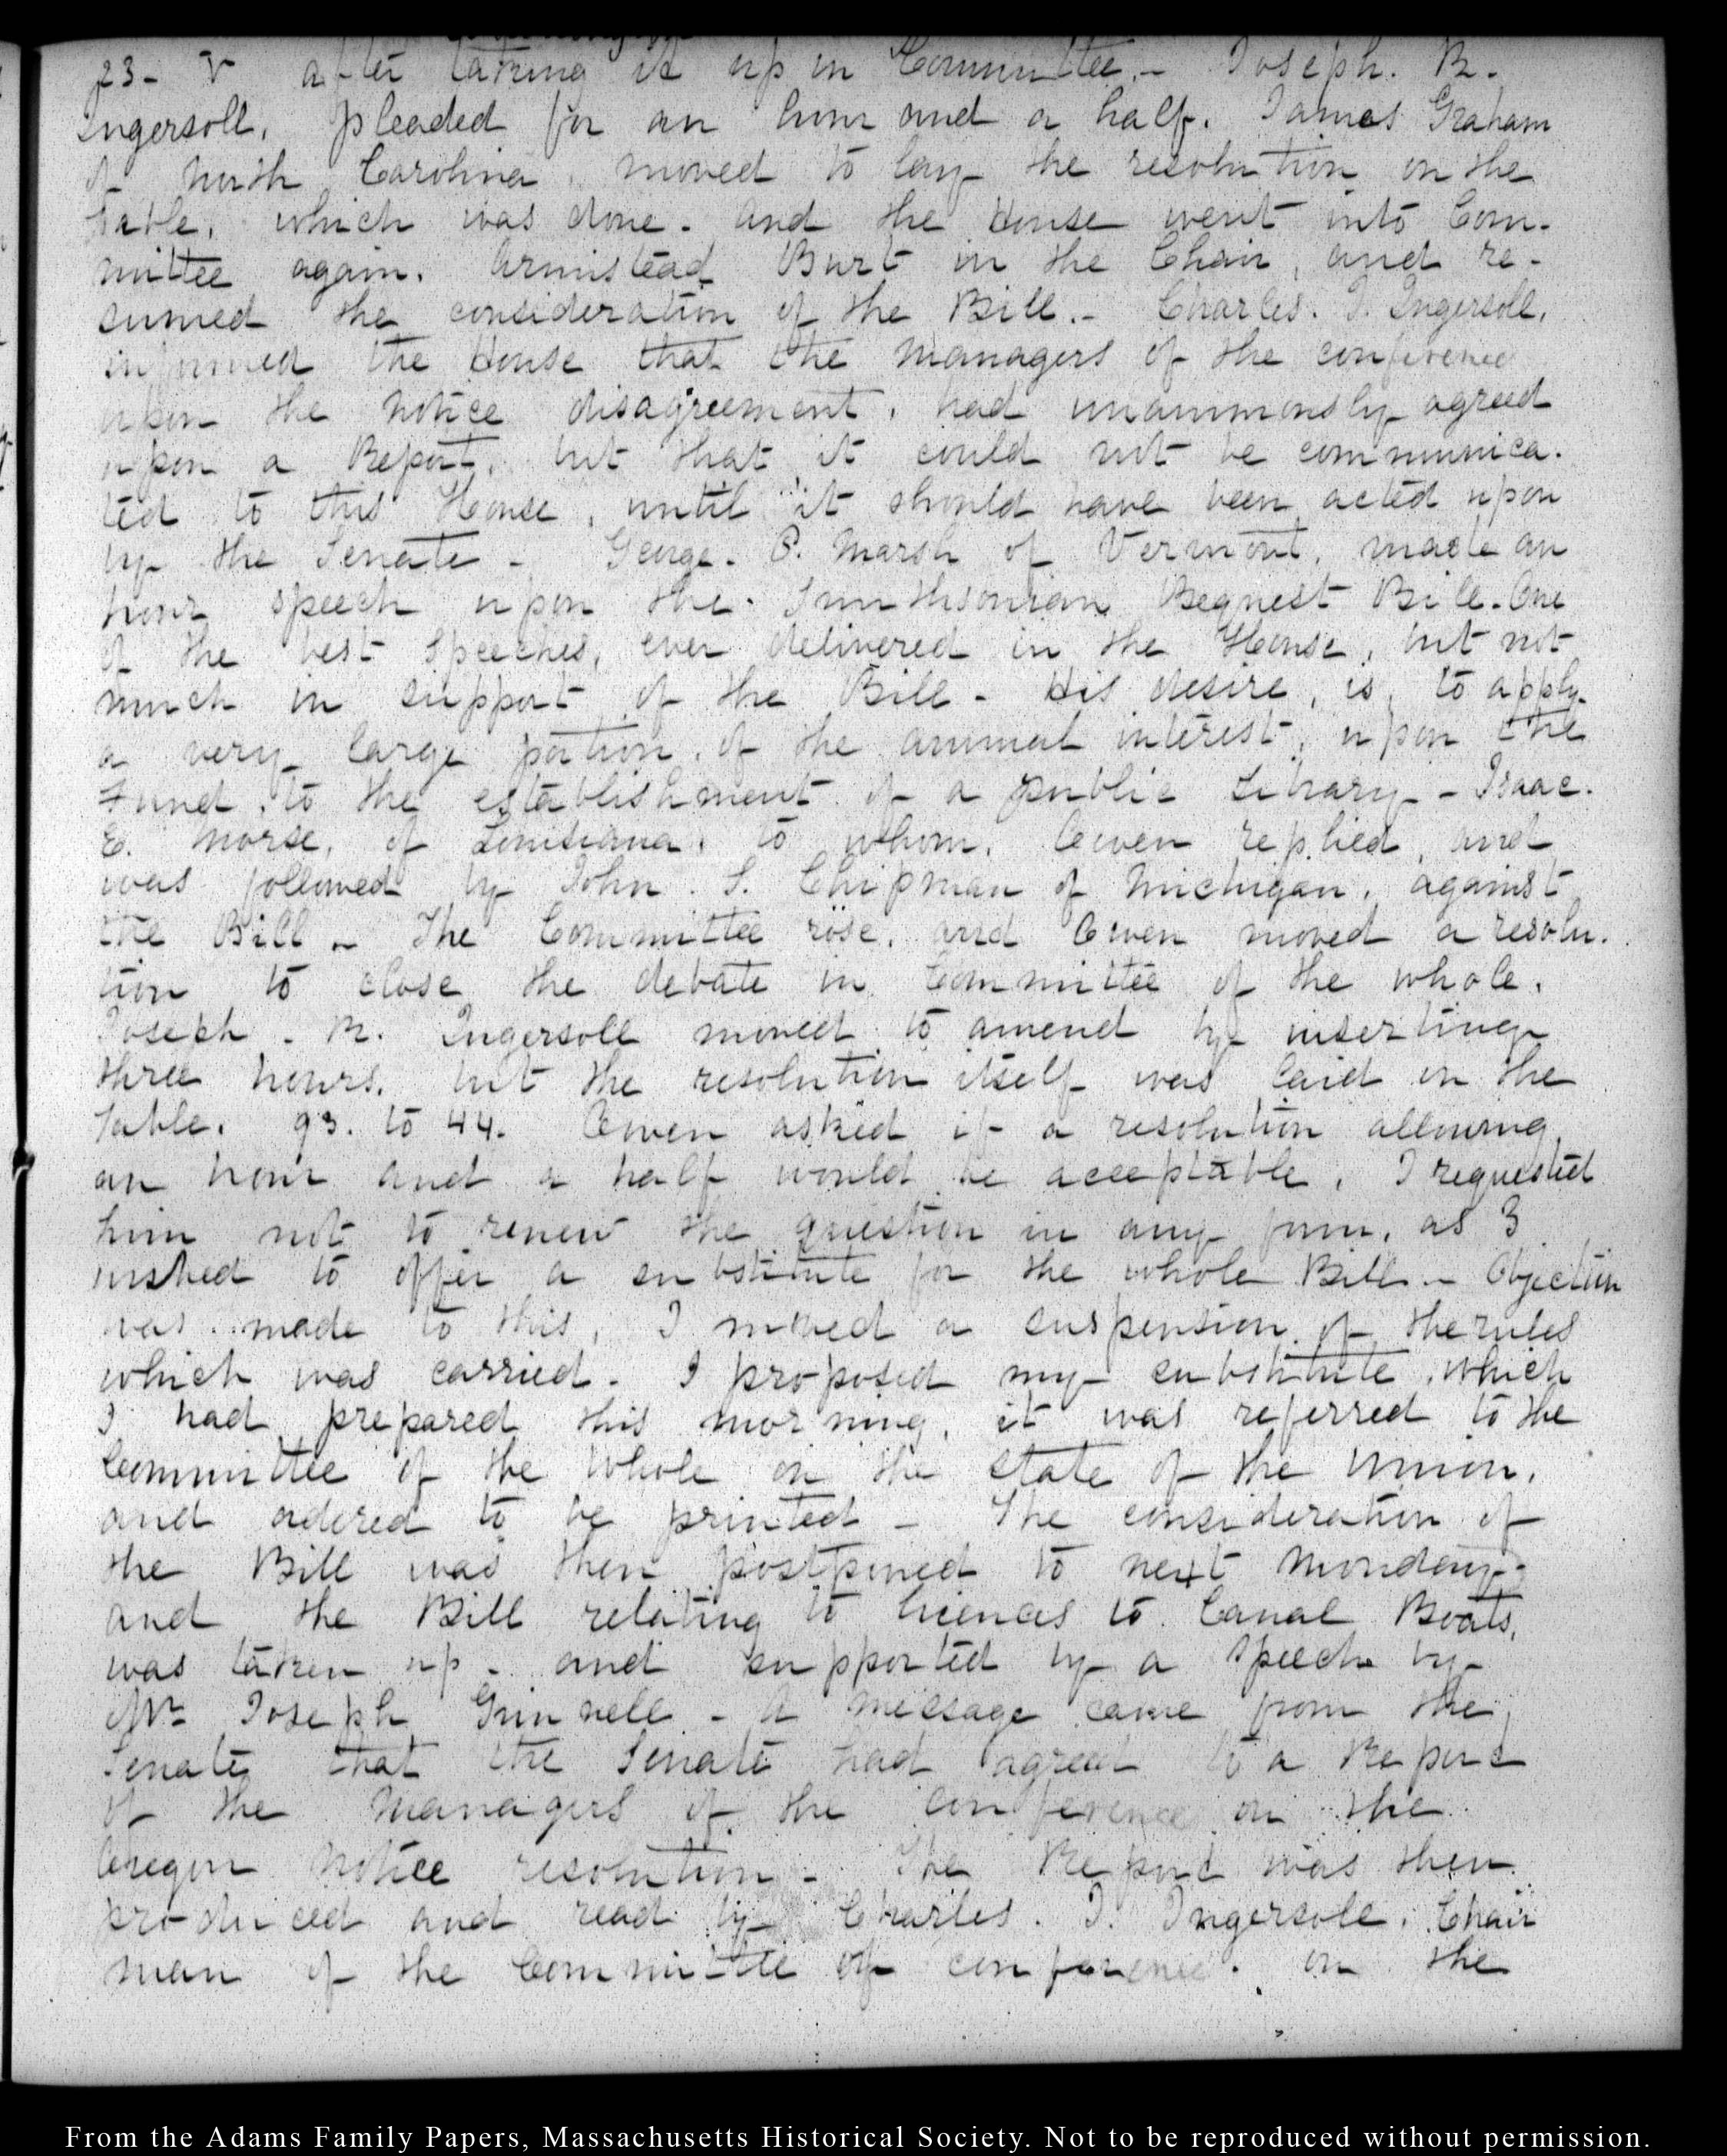 23- V after taking it up in Committee.- Joseph. R.
Ingersoll, pleaded for an hour and a half. James Graham
of North Carolina, moved to lay the resolution on the
table, which was done. and the House went into Com-
mittee again. Armistead Burt in the Chair, and re-
sumed the consideration of the Bill.- Charles. J. Ingersoll,
informed the House that the managers of the conference
upon the notice disagreement, had unanimously agreed
upon a Report, but that it could not be communica-
ted to this House, until it should have been acted upon
by the Senate - George. P. Marsh of Vermont, made an
hour speech upon the Smithsonian Bequest Bill. One
of the best speeches, ever delivered in the House, but not
much in support of the Bill - His desire, is, to apply
a very large portion, of the annual interest, upon the
Fund, to the establishment of a public Library - Isaac.
E. Morse, of Louisiana, to whom, Owen replied, and
was followed by John. S. Chipman of Michigan, against
the Bill - The Committee rose, and Owen moved a resolu-
tion to close the debate in Committee of the whole.
Joseph. R. Ingersoll moved to amend by inserting
three hours, but the resolution itself was laid on the
table. 93. to 44. Owen asked if a resolution allowing
an hour and a half would be acceptable, I requested
him not to renew the question in any form, as I
wished to offer a substitute for the whole Bill - Objection
was made to this, I moved a suspension of the rules
which was carried. I proposed my substitute, which
I had prepared this morning, it was referred to the
Committee of the Whole on the state of the Union,
and ordered to be printed - The consideration of
the Bill was then postponed to next Monday-
and the Bill relating to licences to Canal Boats,
was taken up - and supported by a speech by
Mr Joseph Grinnell - A message came from the
Senate that the Senate had agreed to a Report
of the Managers of the Conference on the
Oregon notice resolution - The Report was then
produced and read by Charles. J. Ingersoll, Chair
man of the Committee of conference. on the
From the Adams Family Papers, Massachusetts Historical Society. Not to be reproduced without permission.